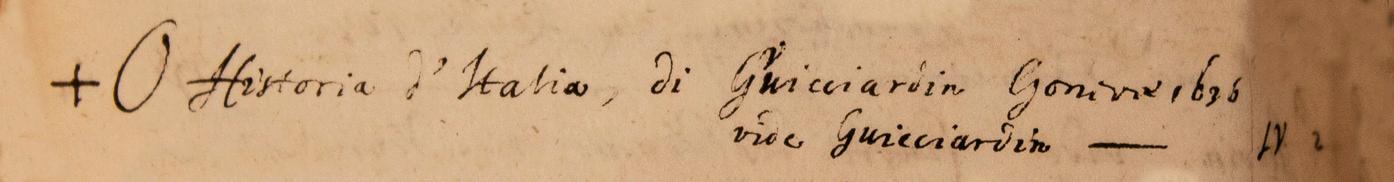 + O Historia d'Italia, di Guicciardin Genevæ 1636
vide Guicciardin —